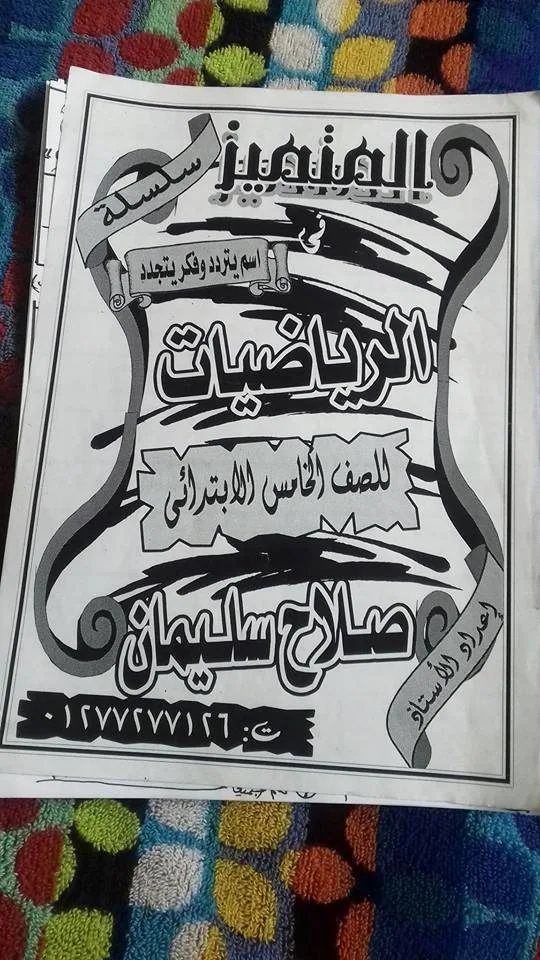 سلسلة
المتميز
فى
اسم يتردد وفكر يتجدد
الرياضيات
للصف الخامس الابتدائى
إعداد الأستاذ
صلاح سليمان
ت: ٠١٢٧٧٢٧٧١٢٦